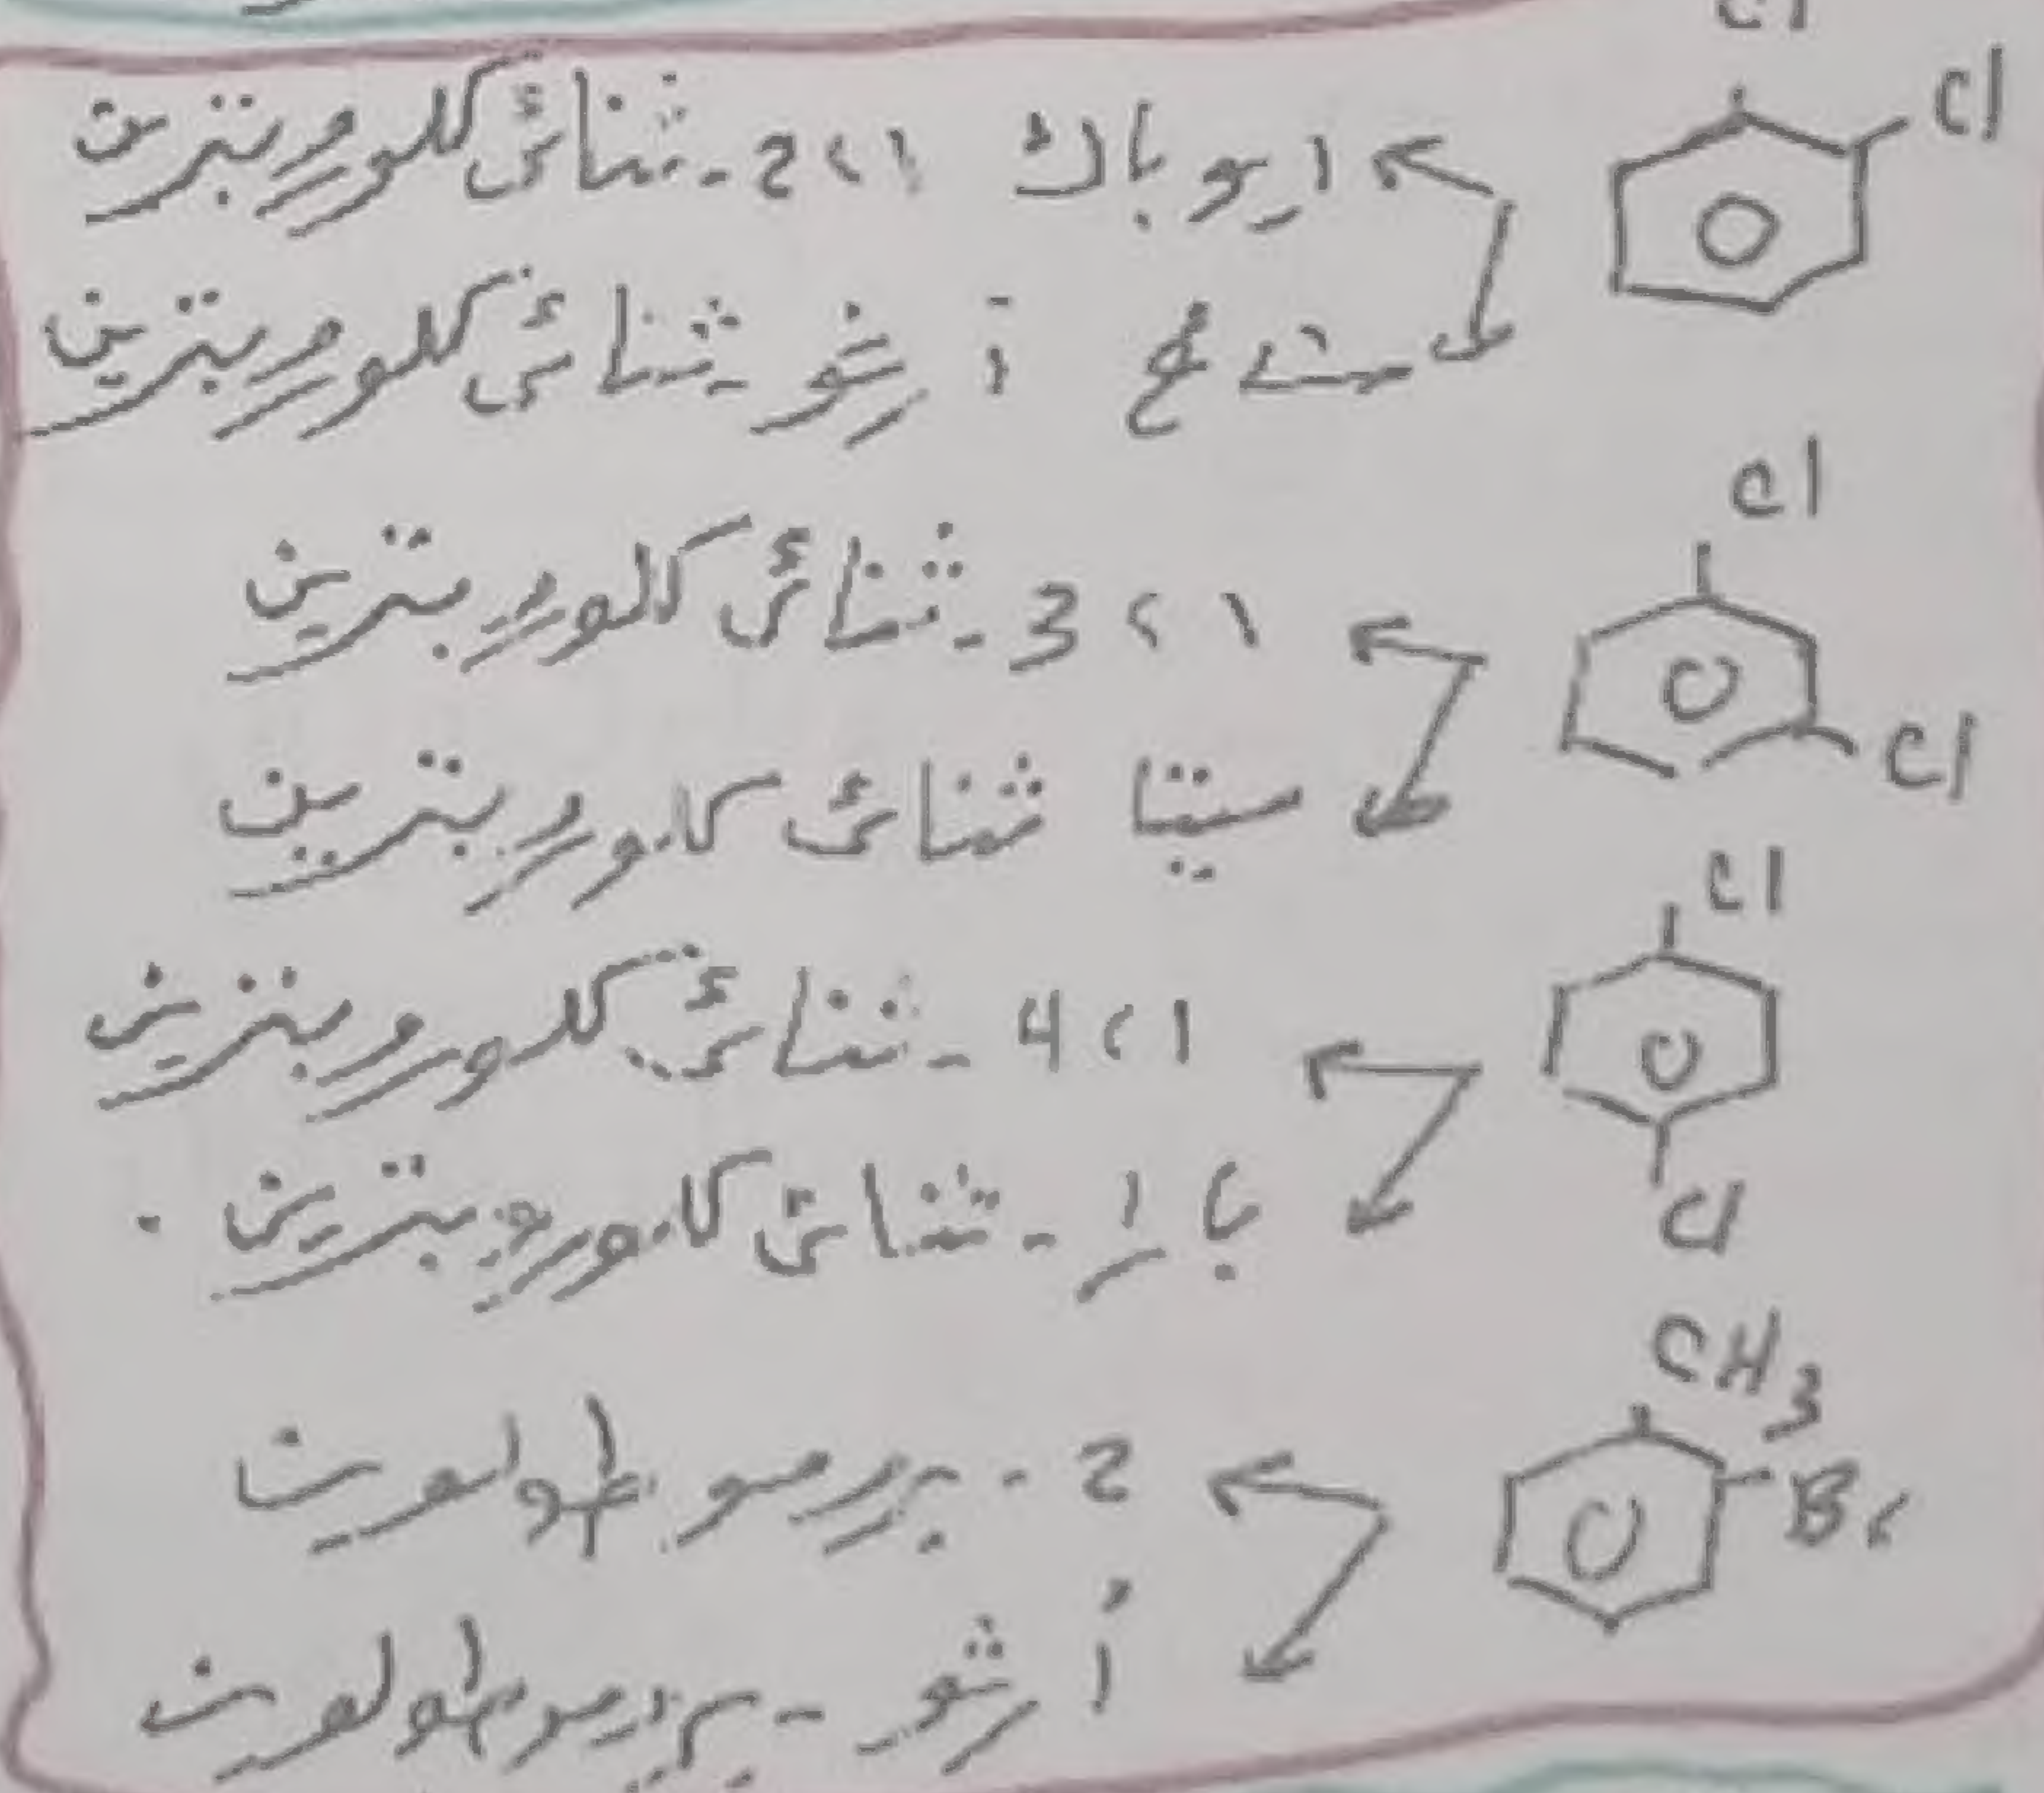 Cl
Cl
ايوباك 1،2-ثنائي كلورو بنزين
شائع أرثو-ثنائي كلورو بنزين
Cl
1،3-ثنائي كلورو بنزين
Cl
ميتا ثنائي كلورو بنزين
Cl
1،4-ثنائي كلورو بنزين
بارا-ثنائي كلورو بنزين.
Cl
CH3
2-برومو طولوين
Br
أرثو-برومو طولوين